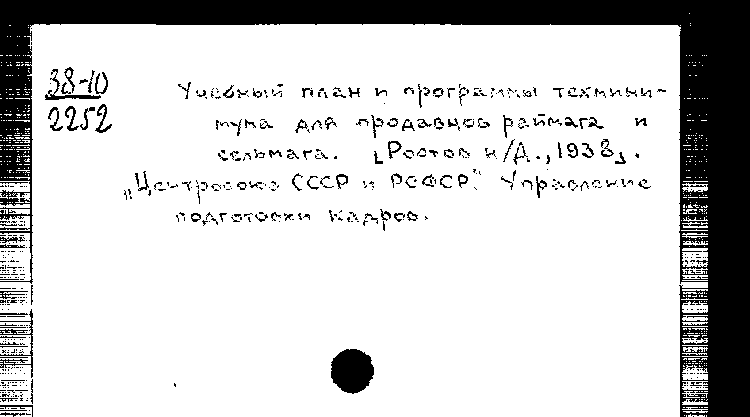 38-10
2252
Учебный план и программы технини-
мума для продавцов раймага и
сельмага. [Ростов н/Д., 1938].
„Центросоюз СССР и РСФСР." Управление
подготовки кадров.